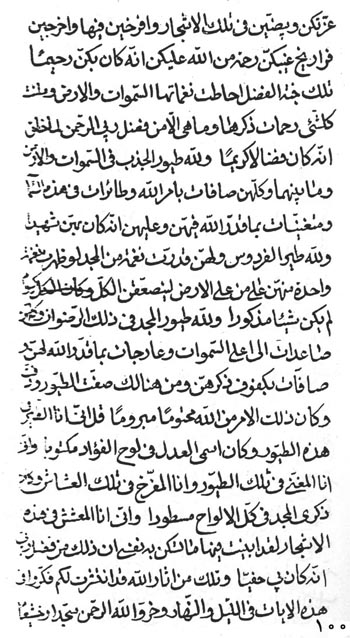 عزتكن ويضئن فى تلك الاشجار وافرخين فيها واخرجين
فراريخ غيبكن رحمة من الله عليكن انه كان بكن رحيما
تلك جنة الفضل احاطت نغماتها السموات والارض وملئت
كلشئ رحمات ذكرها وما هى الا من فضل ربى الرحمن لما خلق
انه كان فضالا كريما ولله طيور الجذب فى السموات والارض
وما بينهما وكلهن صافات بامر الله وطائرات فى هذه السماء
ومتغنيات بما قدر الله فيهن وعليهن انه كان بهن شهيدا
ولله طير الفردوس ولهن قدرت نغمة من المجد لو ظهر نغمة
واحدة منهن على من على الارض لينصعقن الكل وكان الكل
لم يكن شيئا مذكورا ولله طيور المجد فى ذلك الرضوان وكلهن
صاعدات الى اعلى السموات وعارجات بما قدر الله لهن
صافات يكفون فى ذكرهن ومن هنالك صفت الطيور
وكان ذلك الامر من الله محتوما مبروما قل انى انا
هذه الطيور وكان اسمى العدل فى لوح الفؤاد مكتوبا وانى
انا المغنى فى تلك الطيور وانا المفرخ فى تلك العشاش
ذكرى المجد فى كل الالواح مسطورا وانى انا المعشش فى هذه
الاشجار لقد ابنيت فيها ما لا تكن به نفس ان ذلك من فضل ربى
انه كان بى حفيا وتلك من اثار الله قد انشرت لكم فكروا فى
هذه الايات فى الليل والنهار وخروا لله الرحمن سجدا وخشعا
١٠٠